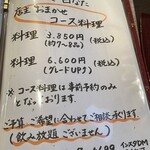 店主 おまかせ
コース料理
料理 3,850円(税込)
(約7〜8品)
料理 6,600円(税込)
(グレードUP)
※コース料理は事前予約のみ
となっております。
ご予算、ご希望に合わせてご相談承ります
(飲み放題 ございません)
インスタDM